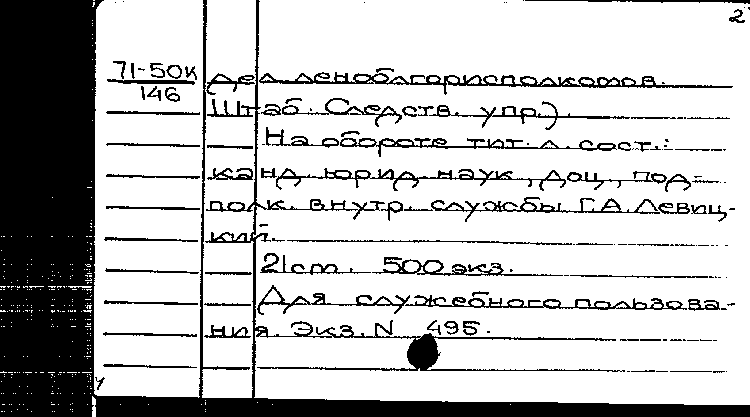 2
71-50к
146
дел леноблгорисполкомов.
Штаб. Следств. упр.).
На обороте тит. л. сост.:
канд. юрид. наук, доц., под-
полк. внутр. службы Г.А. Левиц-
кий.
21 cm. 500 экз.
Для служебного пользова-
ния. Экз. N 495.